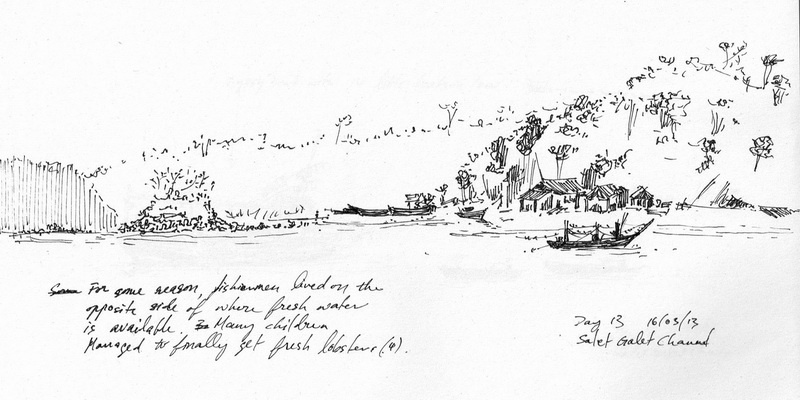 For some reason, fishermen lived on the
opposite side of where fresh water
is available. Many children
Managed to finally get fresh lobsters (4).
Day 13 16/03/13
Salet Galet Channel